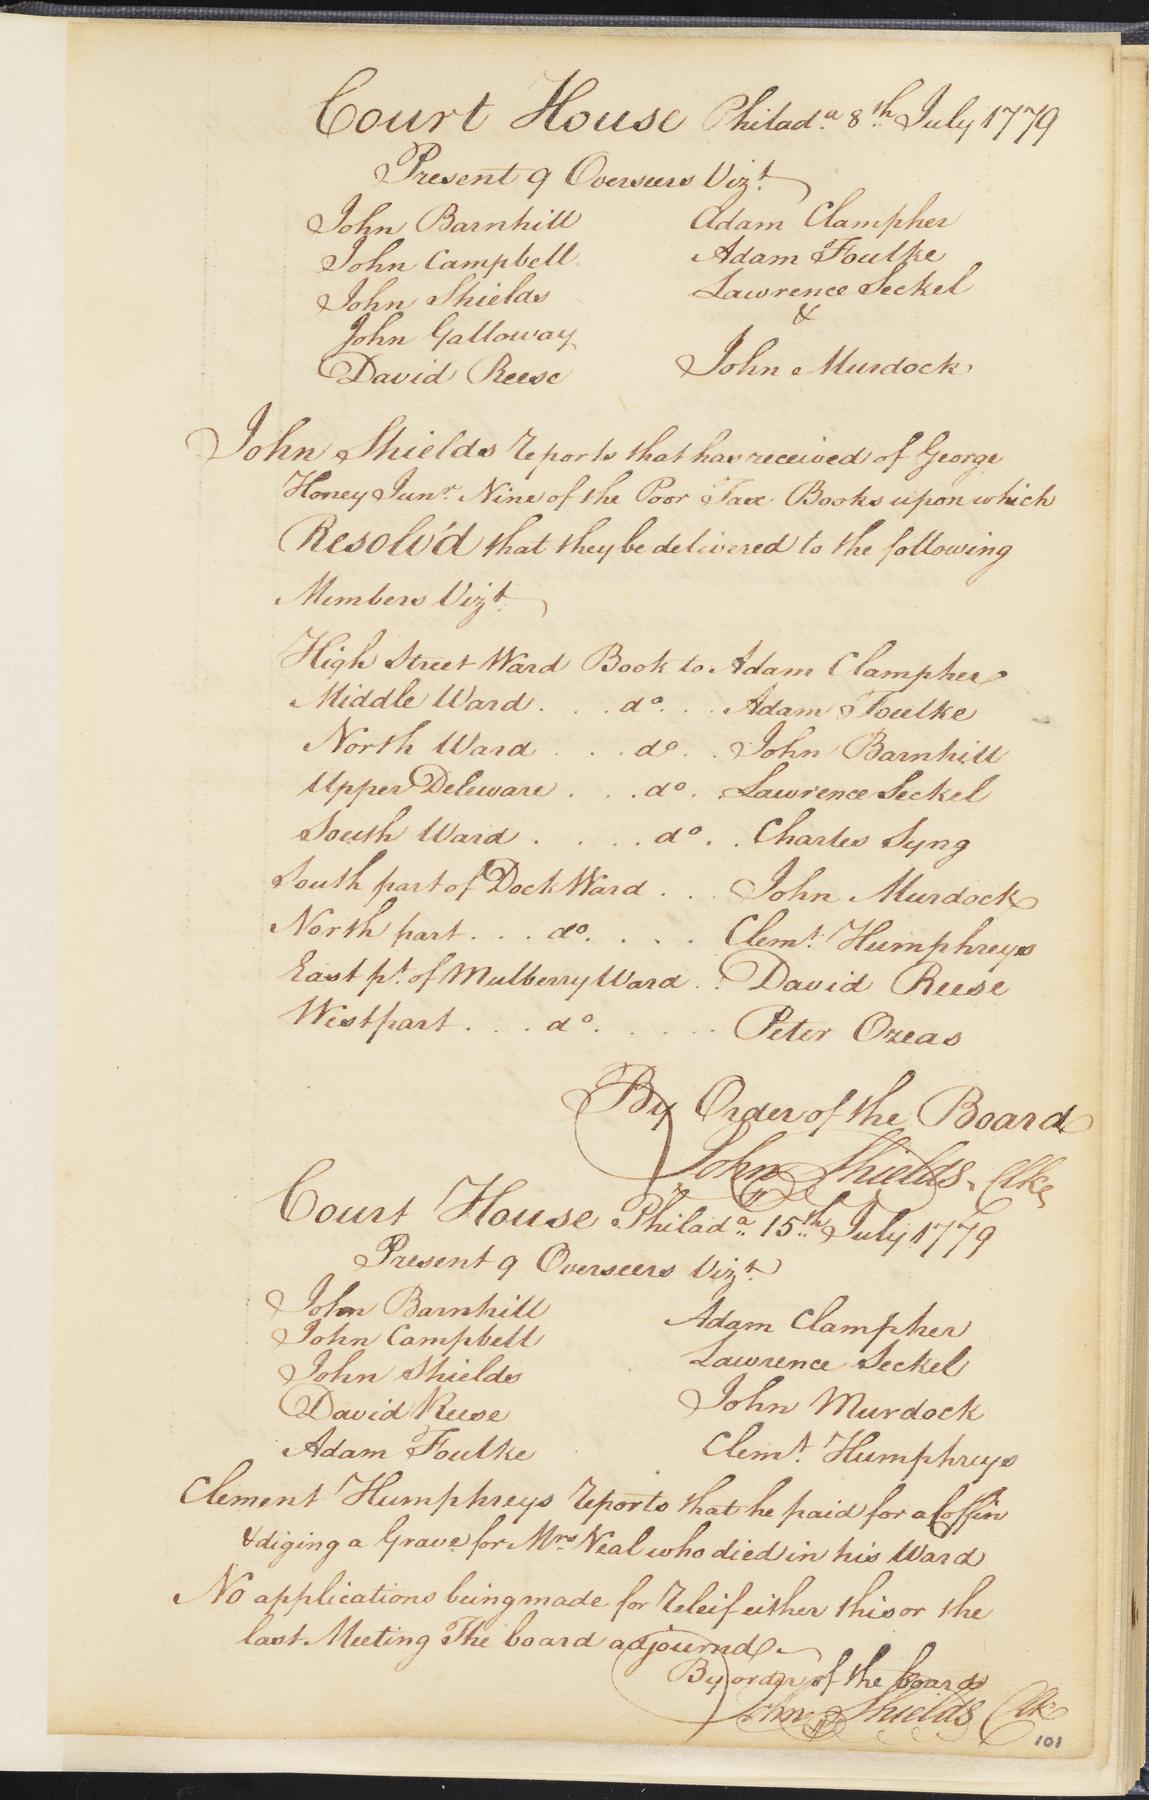 Court House Philad.a 8th July 1779
Present 9 Overseers Vizt.
John Barnhill Adam Clampher
John Campbell Adam Foulke
John Shields Lawrence Seckel
&
John Galloway
David Reese John Murdock
John Shields reports that has received of George
Honey Junr. Nine of the Poor Tax Books upon which
Resolv'd that they be delivered to the following
Members Vizt.
High Street Ward Book to Adam Clampher
Middle Ward . . . do. . . Adam Foulke
North Ward . . . do . . John Barnhill
Upper Deleware . . . do. . Lawrence Seckel
South Ward . . . . do . . Charles Syng
South part of Dock Ward . . John Murdock
North part . . . do. . . . . Clemt. Humphreys
East pt. of Mulberry Ward . . David Reese
West part . . . do. . . . . . Peter Ozeas
By Order of the Board
John Shields Clk
Court House Philada. 15th July 1779
Present 9 Overseers Vizt.
John Barnhill Adam Clampher
John Campbell Lawrence Seckel
John Shields John Murdock
David Reese Clemt. Humphreys
Adam Foulke
Clement Humphreys reports that he paid for a Coffin
& diging a Grave for Mrs Neal who died in his Ward
No applications being made for Releif either this or the
last Meeting The board adjournd
By order of the board
John Shields Clk
101